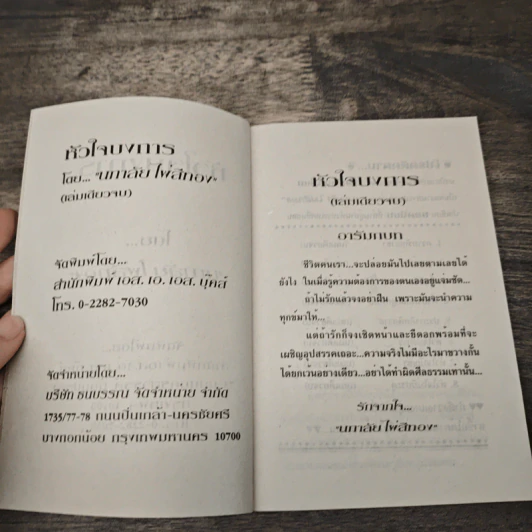 หัวใจบงการ
โดย... "นภาลัย ไผ่สีทอง"
(เล่มเดียวจบ)
จัดพิมพ์โดย...
สำนักพิมพ์ เอส. เอ. เอส. บุ๊คส์
โทร. 0-2282-7030
จัดจำหน่ายโดย...
บริษัท ธนบรรณ จัดจำหน่าย จำกัด
1735/77-78 ถนนปิ่นเกล้า-นครชัยศรี
บางกอกน้อย กรุงเทพมหานคร 10700
หัวใจบงการ
(เล่มเดียวจบ)
อารัมภบท
ชีวิตคนเรา...จะปล่อยมันไปเลยตามเลยได้
ยังไง ในเมื่อรู้ความต้องการของตนเองอยู่แจ่มชัด...
ถ้าไม่รักแล้วจงอย่าฝืน เพราะมันจะนำความ
ทุกข์มาให้...
แต่ถ้ารักก็จงเชิดหน้าและยืดอกพร้อมที่จะ
เผชิญอุปสรรคเถอะ...ความจริงไม่มีอะไรมาขวางกั้น
ได้ยกเว้นอย่างเดียว...อย่าได้ทำผิดศีลธรรมเท่านั้น...
รักจากใจ...
"นภาลัย ไผ่สีทอง"